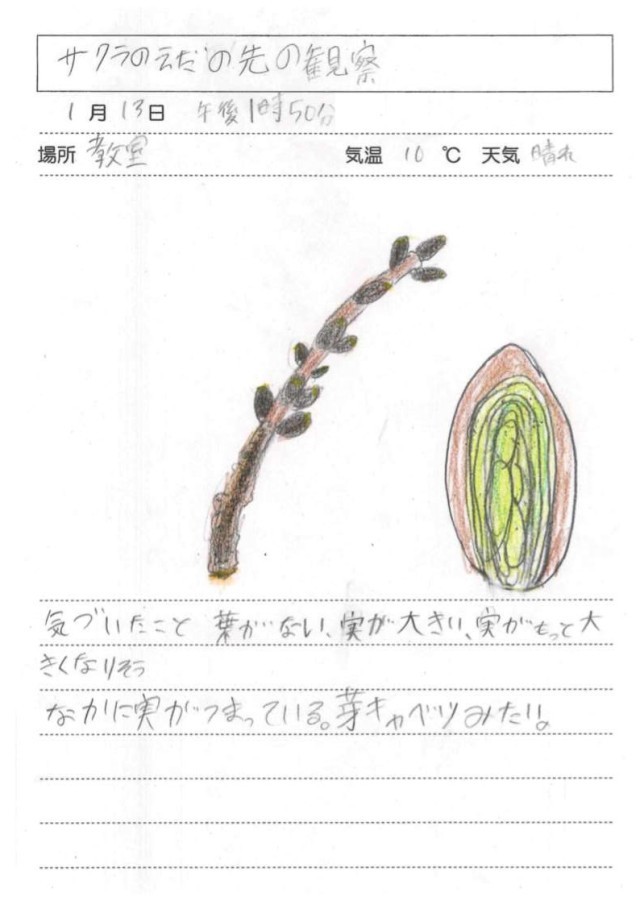 サクラのえだの先の観察
1月13日 午後1時50分
場所 教室 気温 10 ℃ 天気 晴れ
気づいたこと 葉がない、実が大きい、実がもっと大
きくなりそう
なかに実がつまっている。芽キャベツみたい。